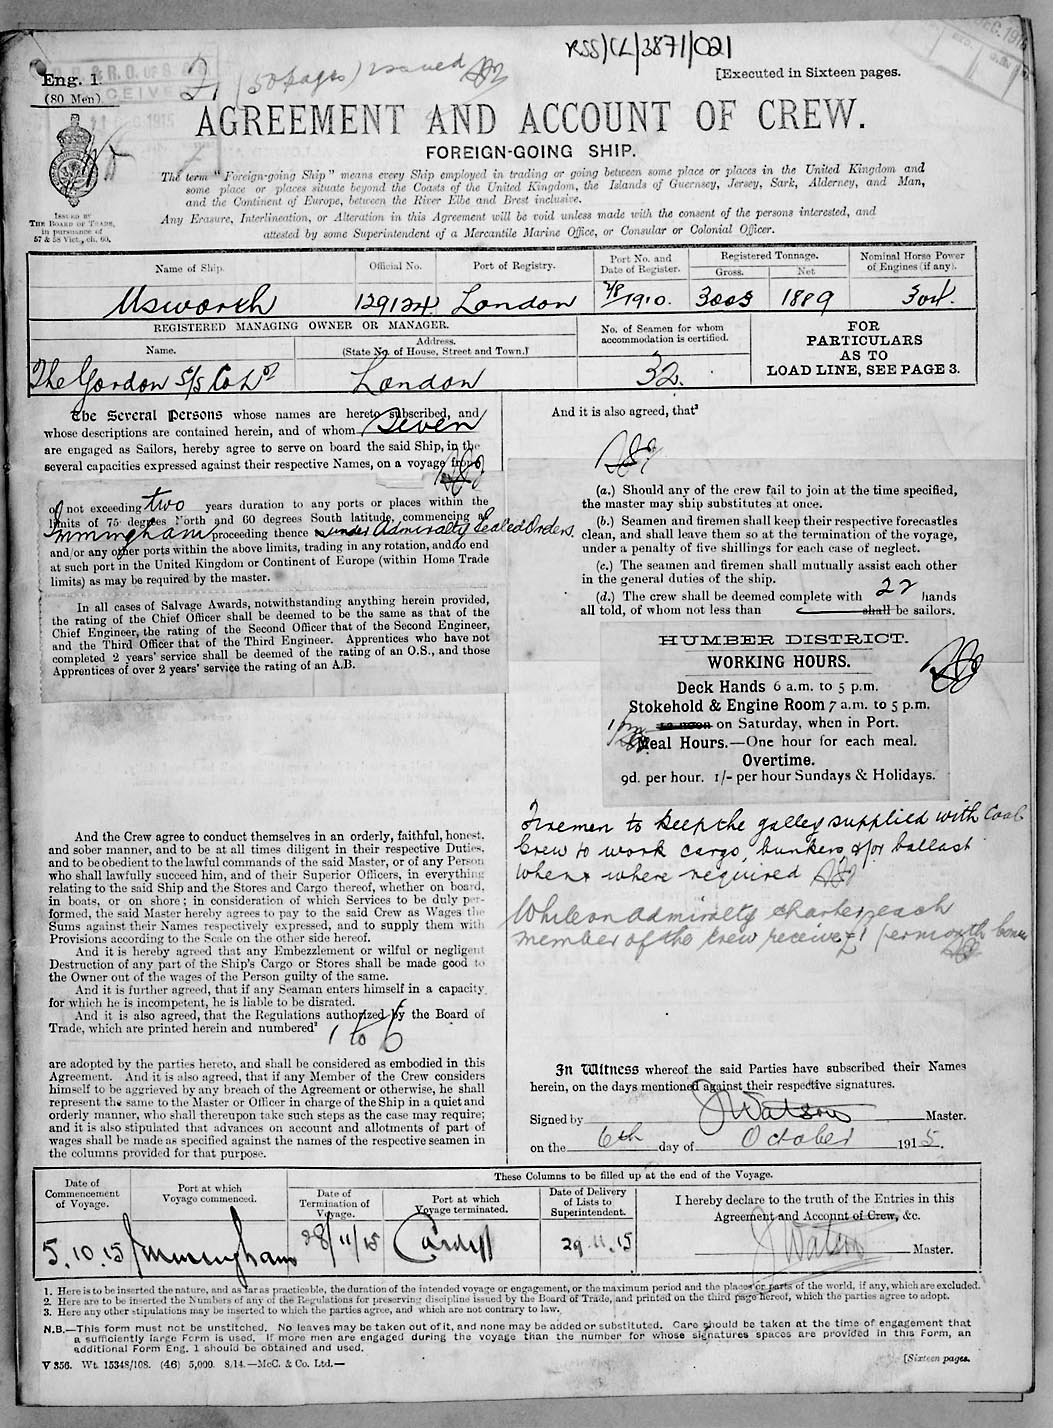 RSS/CL/3871/021
Eng. 1.
(80 Men)
(50 pages) issued
[Executed in Sixteen pages.
AGREEMENT AND ACCOUNT OF CREW.
FOREIGN-GOING SHIP.
ISSUED BY
THE BOARD OF TRADE,
in pursuance of
57 & 58 Vict., ch. 60.
The term "Foreign-going Ship" means every Ship employed in trading or going between some place or places in the United Kingdom and
some place or places situate beyond the Coasts of the United Kingdom, the Islands of Guernsey, Jersey, Sark, Alderney, and Man,
and the Continent of Europe, between the River Elbe and Brest inclusive.
Any Erasure, Interlineation, or Alteration in this Agreement will be void unless made with the consent of the persons interested, and
attested by some Superintendent of a Mercantile Marine Office, or Consular or Colonial Officer.
Name of Ship.
Official No.
Port of Registry.
Port No. and
Date of Register.
Registered Tonnage.
Gross.
Net
Nominal Horse Power
of Engines (if any).
Usworth
129124
London
1910.
3003
1889
304.
REGISTERED MANAGING OWNER OR MANAGER.
Name.
Address.
(State No. of House, Street and Town.)
No. of Seamen for whom
accommodation is certified.
FOR
PARTICULARS
AS TO
LOAD LINE, SEE PAGE 3.
The Gordon S/S Co Ld
London
32.
The Several Persons whose names are hereto subscribed, and
whose descriptions are contained herein, and of whom Seven
are engaged as Sailors, hereby agree to serve on board the said Ship, in the
several capacities expressed against their respective Names, on a voyage from
of not exceeding two years duration to any ports or places within the
limits of 75 degrees North and 60 degrees South latitude, commencing at
Immingham proceeding thence under Admiralty Sealed Orders.
and/or any other ports within the above limits, trading in any rotation, and to end
at such port in the United Kingdom or Continent of Europe (within Home Trade
limits) as may be required by the master.
In all cases of Salvage Awards, notwithstanding anything herein provided,
the rating of the Chief Officer shall be deemed to be the same as that of the
Chief Engineer, the rating of the Second Officer that of the Second Engineer,
and the Third Officer that of the Third Engineer. Apprentices who have not
completed 2 years' service shall be deemed of the rating of an O.S., and those
Apprentices of over 2 years' service the rating of an A.B.
And the Crew agree to conduct themselves in an orderly, faithful, honest,
and sober manner, and to be at all times diligent in their respective Duties,
and to be obedient to the lawful commands of the said Master, or of any Person
who shall lawfully succeed him, and of their Superior Officers, in everything
relating to the said Ship and the Stores and Cargo thereof, whether on board,
in boats, or on shore; in consideration of which Services to be duly per-
formed, the said Master hereby agrees to pay to the said Crew as Wages the
Sums against their Names respectively expressed, and to supply them with
Provisions according to the Scale on the other side hereof.
And it is hereby agreed that any Embezzlement or wilful or negligent
Destruction of any part of the Ship's Cargo or Stores shall be made good to
the Owner out of the wages of the Person guilty of the same.
And it is further agreed, that if any Seaman enters himself in a capacity
for which he is incompetent, he is liable to be disrated.
And it is also agreed, that the Regulations authorized by the Board of
Trade, which are printed herein and numbered² 1 to 6
are adopted by the parties hereto, and shall be considered as embodied in this
Agreement. And it is also agreed, that if any Member of the Crew considers
himself to be aggrieved by any breach of the Agreement or otherwise, he shall
represent the same to the Master or Officer in charge of the Ship in a quiet and
orderly manner, who shall thereupon take such steps as the case may require;
and it is also stipulated that advances on account and allotments of part of
wages shall be made as specified against the names of the respective seamen in
the columns provided for that purpose.
And it is also agreed, that³
(a.) Should any of the crew fail to join at the time specified,
the master may ship substitutes at once.
(b.) Seamen and firemen shall keep their respective forecastles
clean, and shall leave them so at the termination of the voyage,
under a penalty of five shillings for each case of neglect.
(c.) The seamen and firemen shall mutually assist each other
in the general duties of the ship.
(d.) The crew shall be deemed complete with 22 hands
all told, of whom not less than shall be sailors.
HUMBER DISTRICT.
WORKING HOURS.
Deck Hands 6 a.m. to 5 p.m.
Stokehold & Engine Room 7 a.m. to 5 p.m.
1 pm on Saturday, when in Port.
Meal Hours.—One hour for each meal.
Overtime.
9d. per hour. 1/- per hour Sundays & Holidays.
Firemen to keep the galley supplied with Coal
Crew to work cargo, bunkers &/or ballast
when & where required
While on admiralty charter each
member of the Crew receive £1 per month bonus
In Witness whereof the said Parties have subscribed their Names
herein, on the days mentioned against their respective signatures.
Signed by J Watson Master.
on the 6th day of October 1915.
Date of
Commencement
of Voyage.
Port at which
Voyage commenced.
These Columns to be filled up at the end of the Voyage.
Date of
Termination of
Voyage.
Port at which
Voyage terminated.
Date of Delivery
of Lists to
Superintendent.
I hereby declare to the truth of the Entries in this
Agreement and Account of Crew, &c.
5.10.15
Immingham
28/11/15
Cardiff
29.11.15
J Watson Master.
1. Here is to be inserted the nature, and as far as practicable, the duration of the intended voyage or engagement, or the maximum period and the places or parts of the world, if any, which are excluded.
2. Here are to be inserted the Numbers of any of the Regulations for preserving discipline issued by the Board of Trade, and printed on the third page hereof, which the parties agree to adopt.
3. Here any other stipulations may be inserted to which the parties agree, and which are not contrary to law.
N.B.—This form must not be unstitched. No leaves may be taken out of it, and none may be added or substituted. Care should be taken at the time of engagement that
a sufficiently large Form is used. If more men are engaged during the voyage than the number for whose signatures spaces are provided in this Form, an
additional Form Eng. 1 should be obtained and used.
V 356. Wt. 15348/108. (46) 5,000. 8/14.—McC. & Co. Ltd.—
[Sixteen pages.